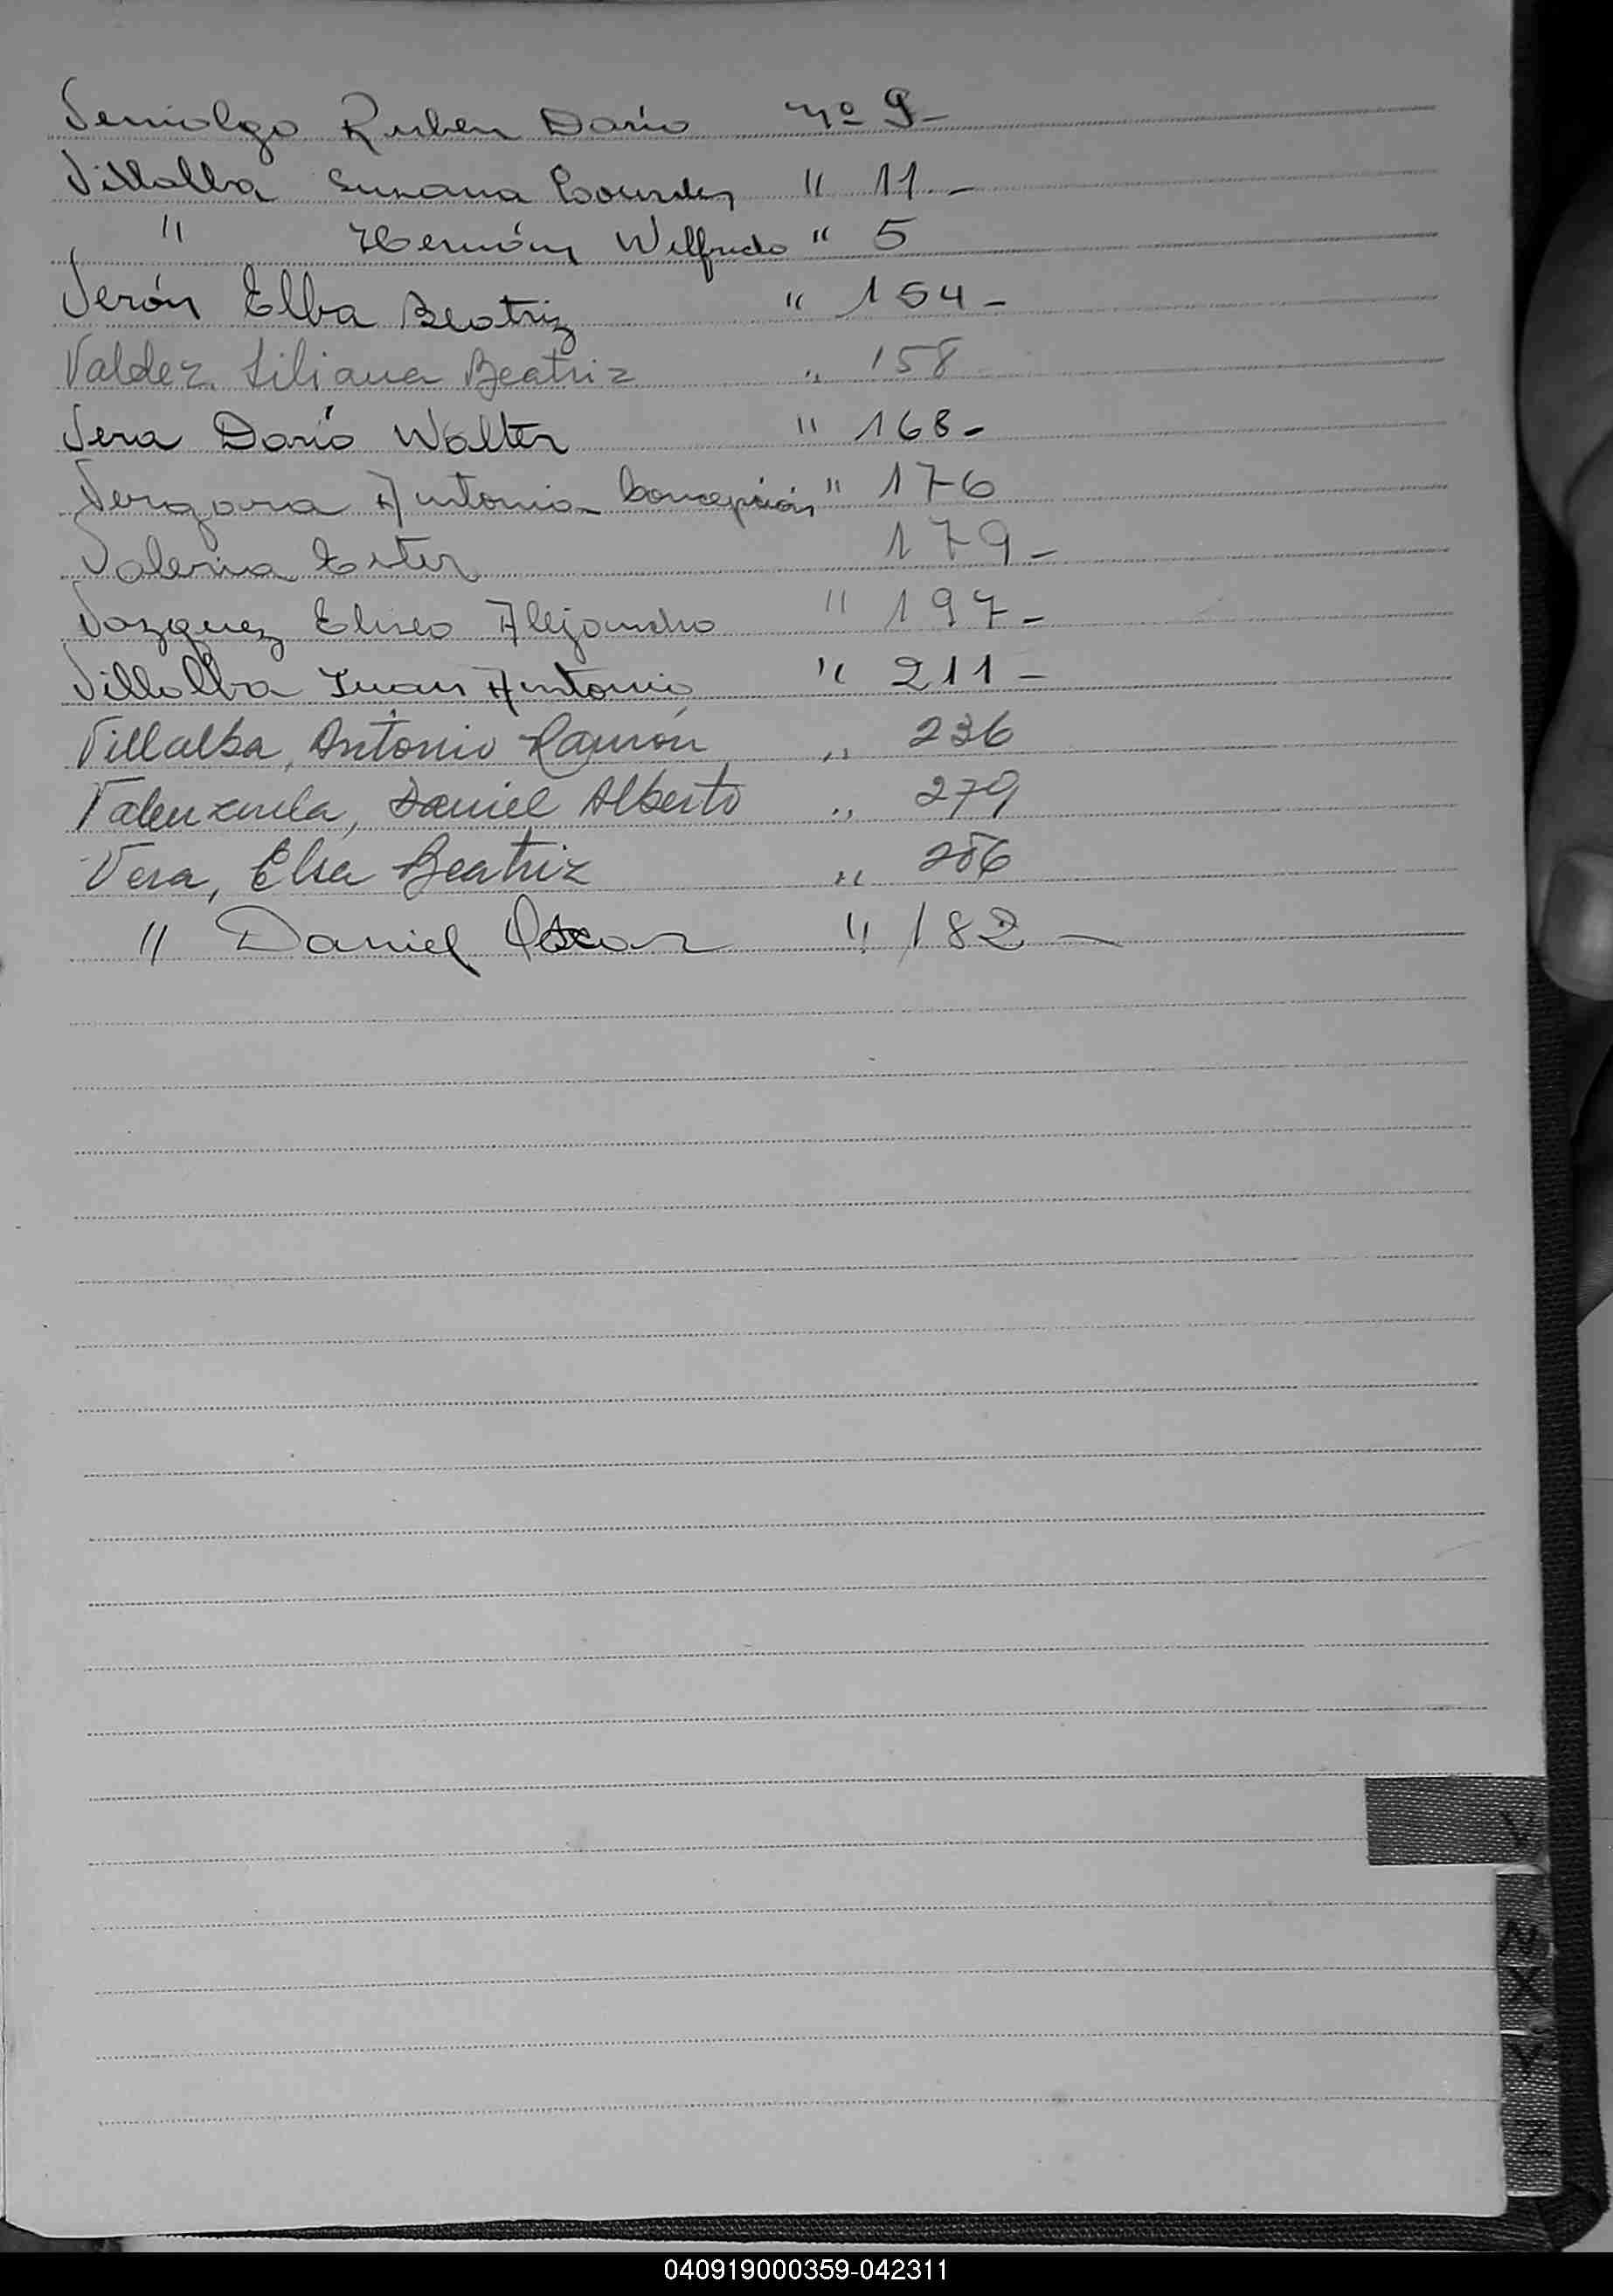 Verniolgo Ruben Dario Nº 9-
Villalba Susana Lourdes " 11-
" Hernán Wilfrido " 5
Verón Elba Beatriz " 154-
Valdez Liliana Beatriz " 158
Vera Darío Walter " 168-
Vergara Antonia Concepción " 176
Valeria Ester 179-
Vazquez Eliseo Alejandro " 197-
Villalba Juan Antonio " 211-
Villalba, Antonio Ramón " 236
Valenzuela, Daniel Alberto " 279
Vera, Elsa Beatriz " 286
" Daniel Oscar " 182-
V
X
Y
Z
040919000359-042311